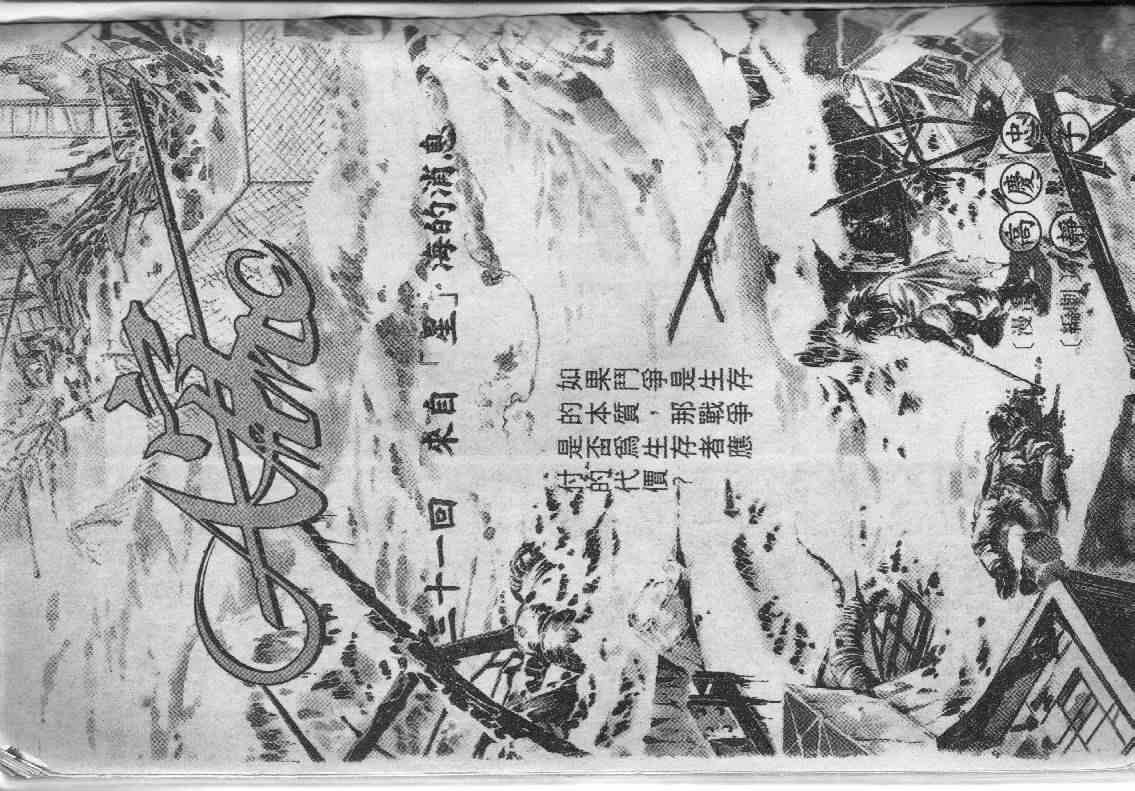 三十一回 來自「星」海的消息
如果鬥爭是生存
的本質，那戰爭
是否爲生存者應
付的代價？
〔漫畫〕高慶忠
〔編劇〕靜子